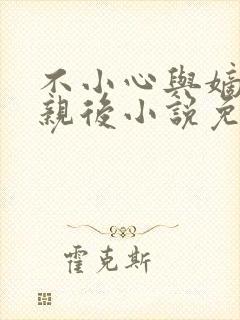 不小心與嫡
親後小說免
霍克斯